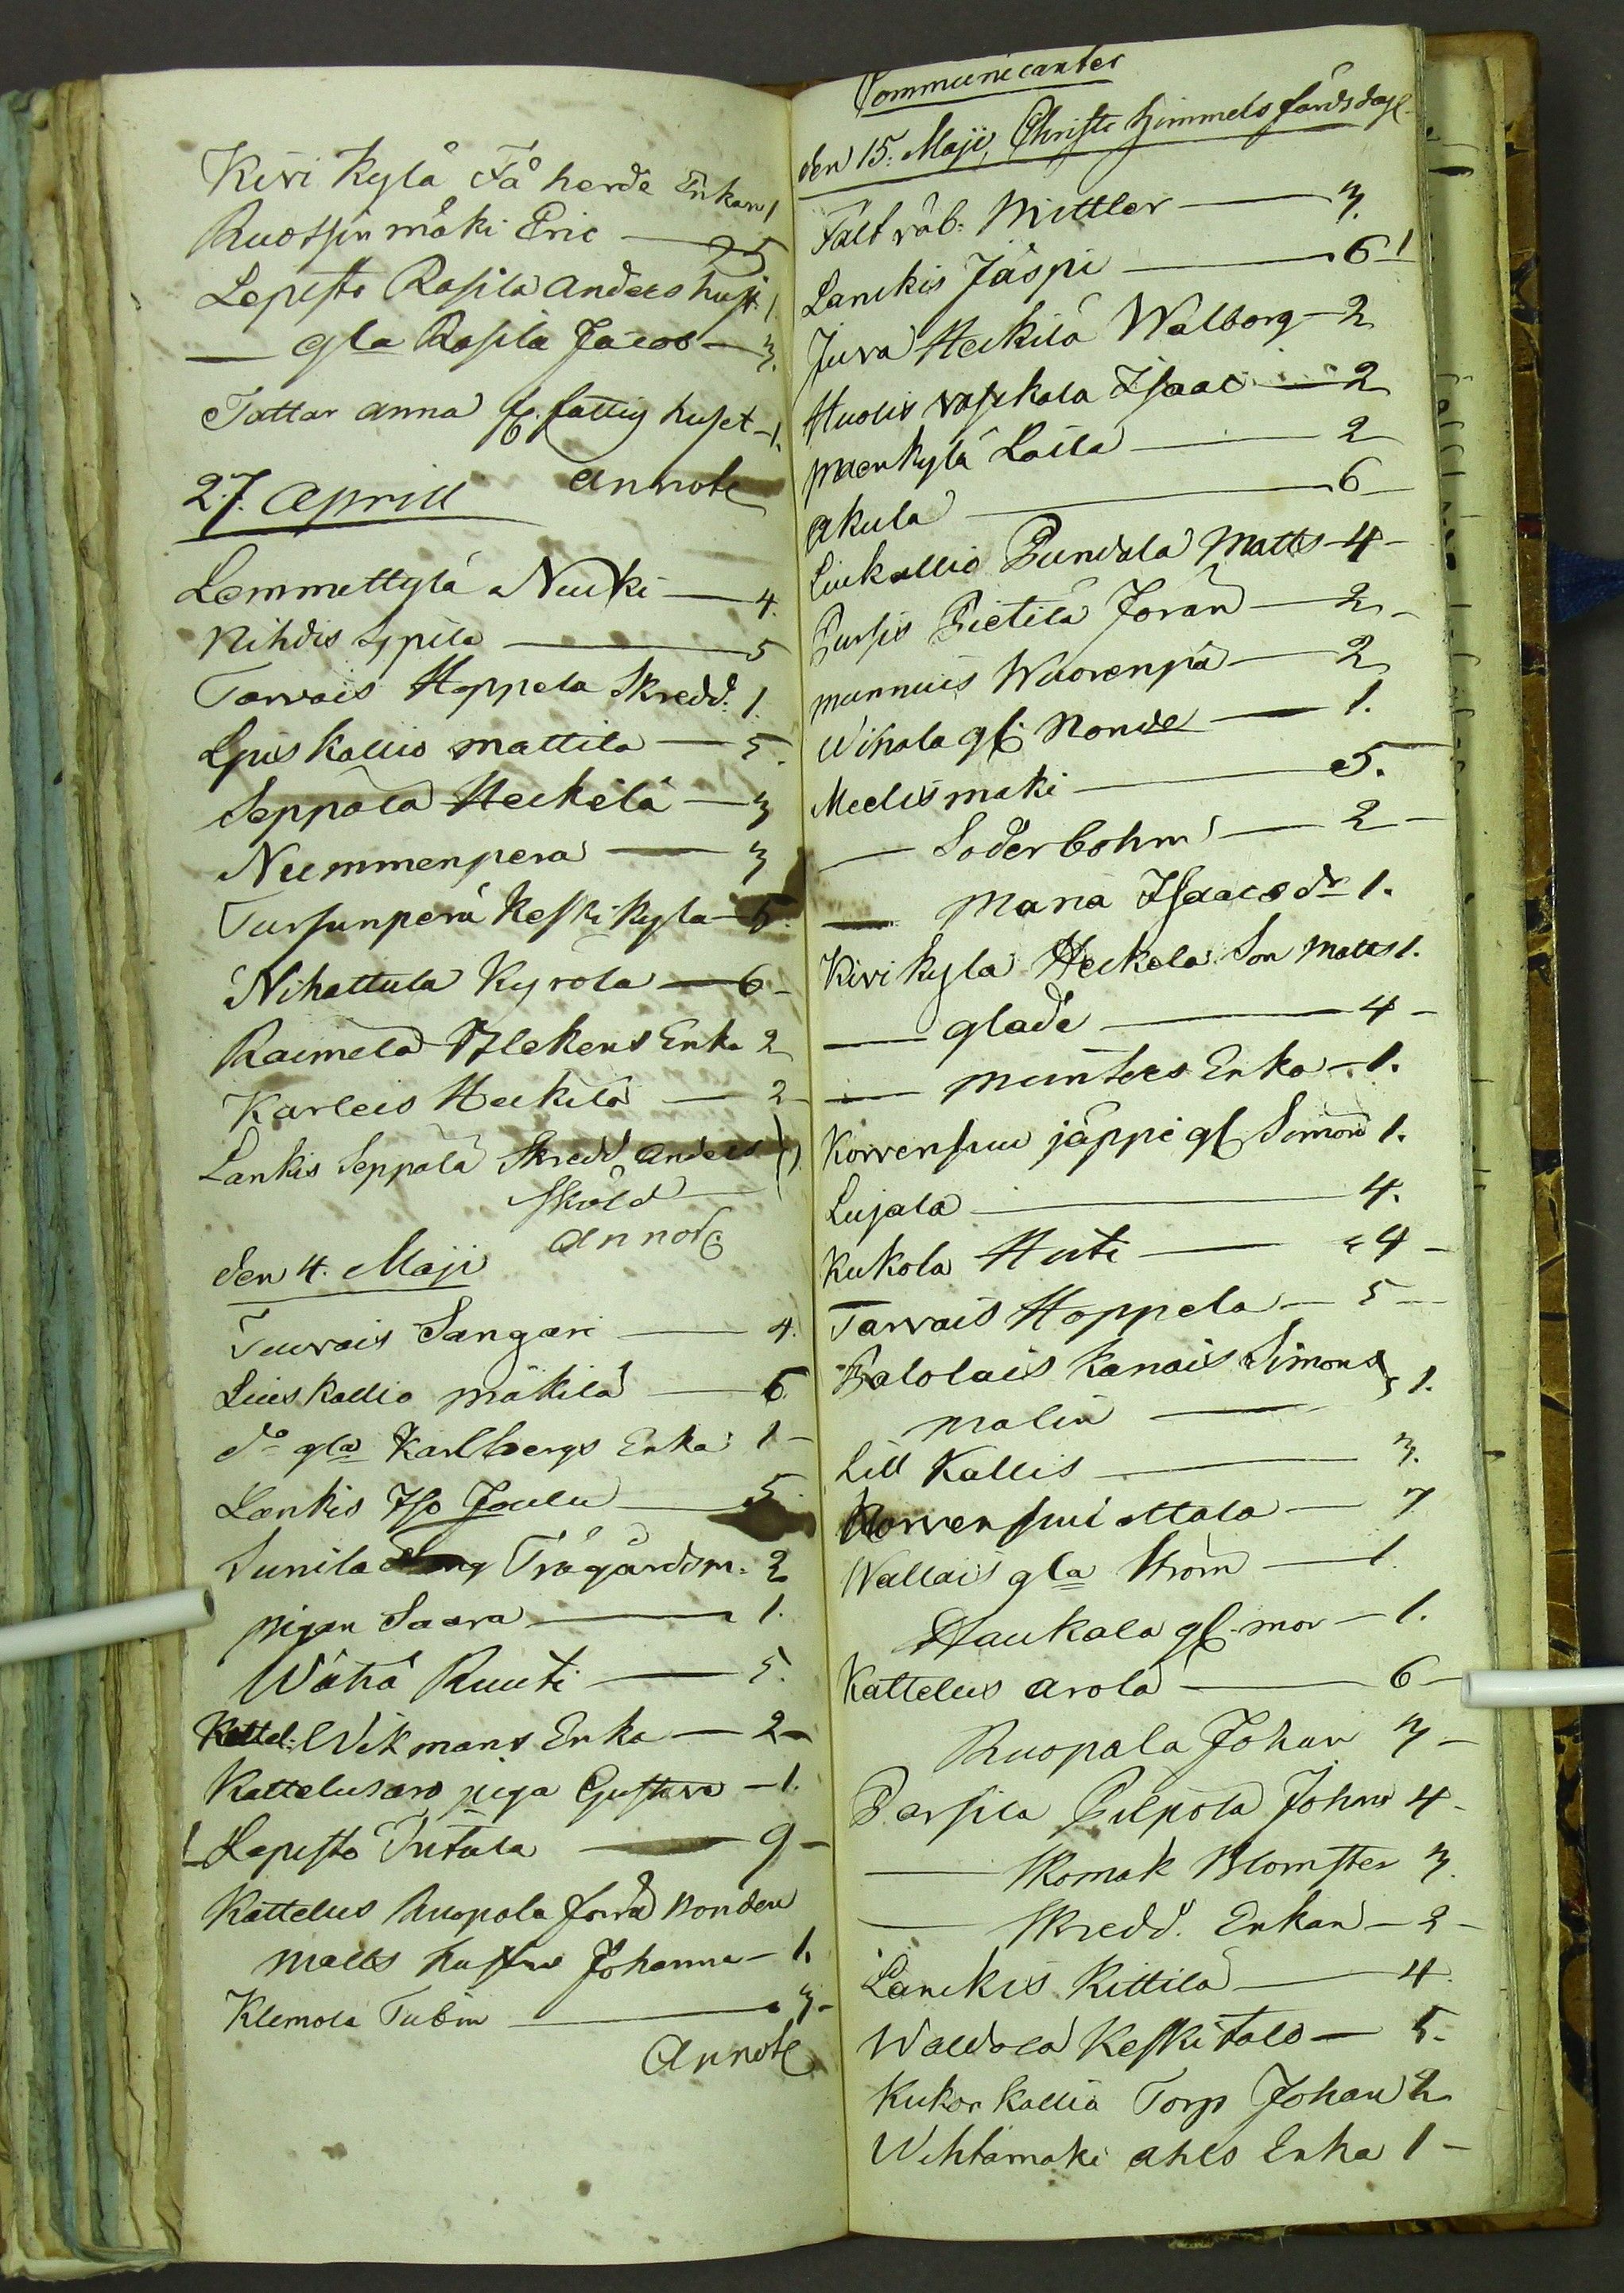 Kivi Kylä Få herde Enkan 1
Ruotsin mäki Eric — 5
Lepistö Rasila Anders hust. 1
— gla Rasila Jacob — 3.
Tattar Anna fr. fattig huset — 1.
27. Aprill Annote
Lemmettylä Nuki — 4.
Nihdis Sÿpilä — 5
Tarvais Hoppela Skredd. 1.
Lius Kallio Mattila — 5.
Seppälä Heikilä — 3
Nummenperä — 3
Tursunperä Keskikylä — 5.
Nihattula Kyrölä — 6 —
Raimela Blekens Enka 2
Karleis Heikilä — 2 —
Lankis Seppälä Skredd Anders
Sköld — 1.
Annote
den 4. Maji
Tuvais Sangari — 4.
Lius Kallio Mäkilä — 6
do gla Karlbergs Enka 1 —
Lankis Iso Joulu — 5
Sunila Trägårdsm. 2
pigan Saara — 1.
Wähä Ruuti — 5.
Kattel: Wikmans Enka — 2 —
Kattelus aro piga Gustava — 1.
Lepistö Tritula — 9 —
Kattelus Ruopola förra bonden
Matts hustru Johanna — 1.
Klemola Tubin — 3 —
Annote
Communicanter
den 15. Maji, Christi Himmelsfärds dag
Fält väb. Mittler — 3.
Lanckis Jäspi — 6 !
Juva Heikilä Walborg — 2
Huolis Isaac — 2
Maenkylä Laila — 2
Akula — 6 —
Liukallio Pundola Matts — 4 —
Pursis Pietilä Joran — 2 —
Munnuis Wuorenpä — 2
Wihala gl. Bonde — 1.
Medismäki — 5.
— Söderbohm — 2 —
— Maria Isaacs dr 1.
Kivi Kylä Heikela Son Matts 1.
— glade — 4 —
— Munters Enka — 1.
Korvensuu jäppi gl Simon 1.
Lujala — 4.
Kukola Huti — 4 —
Tarvais Hoppela — 5 —
Palolais Kanais Simons
Malin — 1.
Lill Kallis — 3.
Korvensuu Attala — 7
Wallais gla Ström — 1.
Haukala gl. mor — 1.
Kattelus Arola — 6 —
Ruopala Johan 3 —
Parsila Pilpola Johan 4 —
— Skomak Blomster 3.
— Skredd. Enkan — 2 —
Lanckis Kittilä — 4.
Waldola Keskitalo — 5.
Kukor Kallio Torp Johan 2
Wihtamäki Ahls Enka 1 —